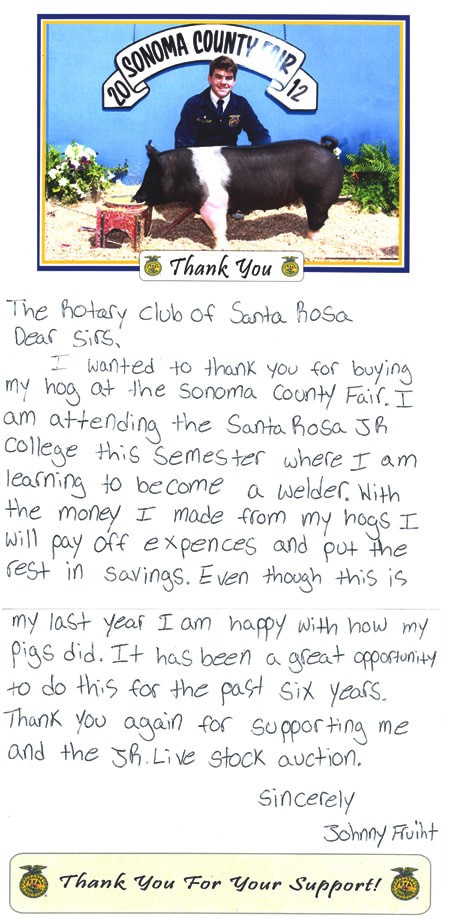 SONOMA COUNTY FAIR
2012
Thank You
The Rotary Club of Santa Rosa
Dear Sirs,
I wanted to thank you for buying
my hog at the Sonoma County Fair. I
am attending the Santa Rosa JR
college this semester where I am
learning to become a welder. With
the money I made from my hogs I
will pay off expences and put the
rest in savings. Even though this is
my last year I am happy with how my
pigs did. It has been a great opportunity
to do this for the past six years.
Thank you again for supporting me
and the JR. Live stock auction.
Sincerely
Johnny Fruiht
Thank You For Your Support!